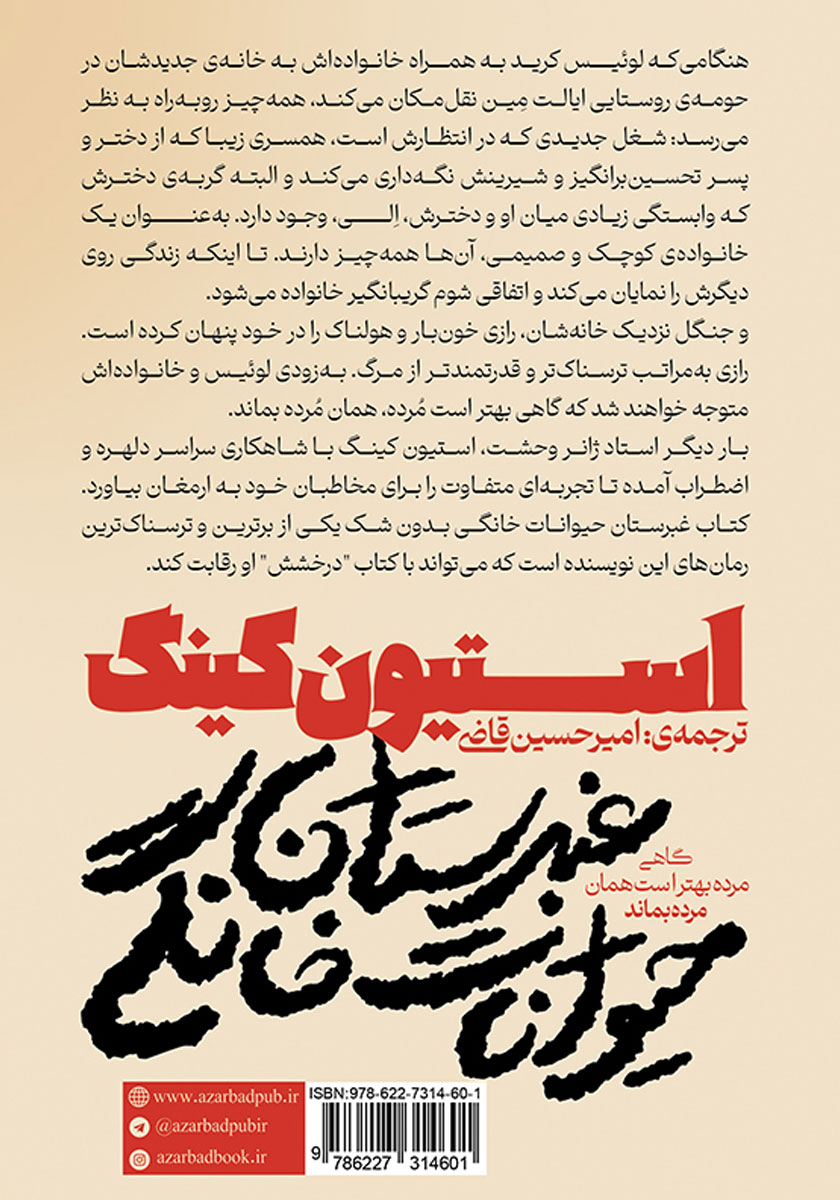 هنگامی‌که لوئیس کرید به همراه خانواده‌اش به خانه‌ی جدیدشان در
حومه‌ی روستایی ایالت مِین نقل‌مکان می‌کند، همه‌چیز روبه‌راه به نظر
می‌رسد: شغل جدیدی که در انتظارش است، همسری زیبا که از دختر و
پسر تحسین‌برانگیز و شیرینش نگه‌داری می‌کند و البته گربه‌ی دخترش
که وابستگی زیادی میان او و دخترش، اِلی، وجود دارد. به‌عنوان یک
خانواده‌ی کوچک و صمیمی، آن‌ها همه‌چیز دارند. تا اینکه زندگی روی
دیگرش را نمایان می‌کند و اتفاقی شوم گریبانگیر خانواده می‌شود.
و جنگل نزدیک خانه‌شان، رازی خون‌بار و هولناک را در خود پنهان کرده است.
رازی به‌مراتب ترسناک‌تر و قدرتمندتر از مرگ. به‌زودی لوئیس و خانواده‌اش
متوجه خواهند شد که گاهی بهتر است مُرده، همان مُرده بماند.
بار دیگر استاد ژانر وحشت، استیون کینگ با شاهکاری سراسر دلهره و
اضطراب آمده تا تجربه‌ای متفاوت را برای مخاطبان خود به ارمغان بیاورد.
کتاب غبرستان حیوانات خانگی بدون شک یکی از برترین و ترسناک‌ترین
رمان‌های این نویسنده است که می‌تواند با کتاب "درخشش" او رقابت کند.
استیون کینگ
ترجمه‌ی: امیرحسین قاضی
غبرستان
حیوانات خانگی
گاهی
مرده بهتر است همان
مرده بماند
www.azarbadpub.ir
@azarbadpubir
azarbadbook.ir
ISBN: 978-622-7314-60-1
9 786227 314601